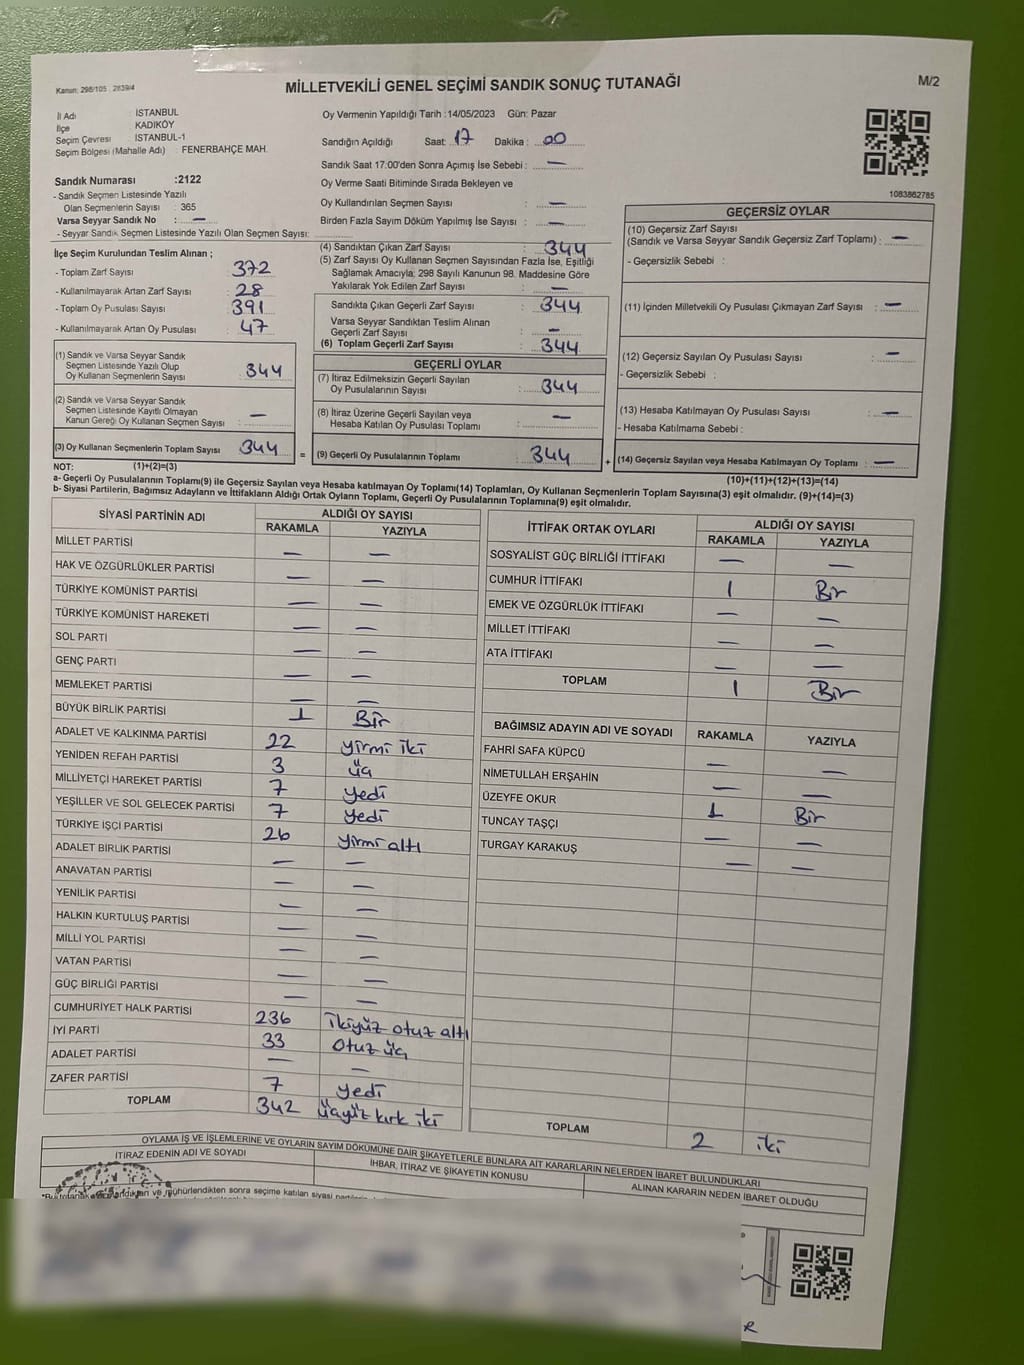 Kanun: 298/105 . 2839/4
MİLLETVEKİLİ GENEL SEÇİMİ SANDIK SONUÇ TUTANAĞI
M/2
İl Adı : İSTANBUL
İlçe : KADIKÖY
Seçim Çevresi : İSTANBUL-1
Seçim Bölgesi (Mahalle Adı) : FENERBAHÇE MAH.
Oy Vermenin Yapıldığı Tarih :14/05/2023 Gün: Pazar
Sandığın Açıldığı Saat: 17 Dakika : 00
Sandık Saat 17:00'den Sonra Açımış İse Sebebi : —
Oy Verme Saati Bitiminde Sırada Bekleyen ve
Oy Kullandırılan Seçmen Sayısı : —
Birden Fazla Sayım Döküm Yapılmış İse Sayısı : —
1083862785
Sandık Numarası :2122
- Sandık Seçmen Listesinde Yazılı
Olan Seçmenlerin Sayısı : 365
Varsa Seyyar Sandık No : —
- Seyyar Sandık Seçmen Listesinde Yazılı Olan Seçmen Sayısı:
İlçe Seçim Kurulundan Teslim Alınan ;
- Toplam Zarf Sayısı : 372
- Kullanılmayarak Artan Zarf Sayısı : 28
- Toplam Oy Pusulası Sayısı : 391
- Kullanılmayarak Artan Oy Pusulası : 47
(1) Sandık ve Varsa Seyyar Sandık
Seçmen Listesinde Yazılı Olup
Oy Kullanan Seçmenlerin Sayısı : 344
(2) Sandık ve Varsa Seyyar Sandık
Seçmen Listesinde Kayıtlı Olmayan
Kanun Gereği Oy Kullanan Seçmen Sayısı : —
(3) Oy Kullanan Seçmenlerin Toplam Sayısı 344 =
(4) Sandıktan Çıkan Zarf Sayısı : 344
(5) Zarf Sayısı Oy Kullanan Seçmen Sayısından Fazla İse, Eşitliği
Sağlamak Amacıyla; 298 Sayılı Kanunun 98. Maddesine Göre
Yakılarak Yok Edilen Zarf Sayısı : —
Sandıkta Çıkan Geçerli Zarf Sayısı : 344
Varsa Seyyar Sandıktan Teslim Alınan
Geçerli Zarf Sayısı : —
(6) Toplam Geçerli Zarf Sayısı : 344
GEÇERLİ OYLAR
(7) İtiraz Edilmeksizin Geçerli Sayılan
Oy Pusulalarının Sayısı : 344
(8) İtiraz Üzerine Geçerli Sayılan veya
Hesaba Katılan Oy Pusulası Toplamı : —
(9) Geçerli Oy Pusulalarının Toplamı : 344 +
GEÇERSİZ OYLAR
(10) Geçersiz Zarf Sayısı
(Sandık ve Varsa Seyyar Sandık Geçersiz Zarf Toplamı) : —
- Geçersizlik Sebebi :
(11) İçinden Milletvekili Oy Pusulası Çıkmayan Zarf Sayısı : —
(12) Geçersiz Sayılan Oy Pusulası Sayısı : —
- Geçersizlik Sebebi :
(13) Hesaba Katılmayan Oy Pusulası Sayısı : —
- Hesaba Katılmama Sebebi :
(14) Geçersiz Sayılan veya Hesaba Katılmayan Oy Toplamı : —
NOT: (1)+(2)=(3) (10)+(11)+(12)+(13)=(14)
a- Geçerli Oy Pusulalarının Toplamı(9) ile Geçersiz Sayılan veya Hesaba katılmayan Oy Toplamı(14) Toplamları, Oy Kullanan Seçmenlerin Toplam Sayısına(3) eşit olmalıdır. (9)+(14)=(3)
b- Siyasi Partilerin, Bağımsız Adayların ve İttifakların Aldığı Ortak Oyların Toplamı, Geçerli Oy Pusulalarının Toplamına(9) eşit olmalıdır.
SİYASİ PARTİNİN ADI ALDIĞI OY SAYISI
RAKAMLA YAZIYLA
MİLLET PARTİSİ — —
HAK VE ÖZGÜRLÜKLER PARTİSİ — —
TÜRKİYE KOMÜNİST PARTİSİ — —
TÜRKİYE KOMÜNİST HAREKETİ — —
SOL PARTİ — —
GENÇ PARTİ — —
MEMLEKET PARTİSİ — —
BÜYÜK BİRLİK PARTİSİ 1 Bir
ADALET VE KALKINMA PARTİSİ 22 yirmi iki
YENİDEN REFAH PARTİSİ 3 üç
MİLLİYETÇİ HAREKET PARTİSİ 7 yedi
YEŞİLLER VE SOL GELECEK PARTİSİ 7 yedi
TÜRKİYE İŞÇİ PARTİSİ 26 yirmi altı
ADALET BİRLİK PARTİSİ — —
ANAVATAN PARTİSİ — —
YENİLİK PARTİSİ — —
HALKIN KURTULUŞ PARTİSİ — —
MİLLİ YOL PARTİSİ — —
VATAN PARTİSİ — —
GÜÇ BİRLİĞİ PARTİSİ — —
CUMHURİYET HALK PARTİSİ 236 ikiyüz otuz altı
İYİ PARTİ 33 otuz üç
ADALET PARTİSİ — —
ZAFER PARTİSİ 7 yedi
TOPLAM 342 üçyüz kırk iki
İTTİFAK ORTAK OYLARI ALDIĞI OY SAYISI
RAKAMLA YAZIYLA
SOSYALİST GÜÇ BİRLİĞİ İTTİFAKI — —
CUMHUR İTTİFAKI 1 Bir
EMEK VE ÖZGÜRLÜK İTTİFAKI — —
MİLLET İTTİFAKI — —
ATA İTTİFAKI — —
TOPLAM 1 Bir
BAĞIMSIZ ADAYIN ADI VE SOYADI RAKAMLA YAZIYLA
FAHRİ SAFA KÜPCÜ — —
NİMETULLAH ERŞAHİN — —
ÜZEYFE OKUR 1 Bir
TUNCAY TAŞÇI — —
TURGAY KARAKUŞ — —
TOPLAM 2 iki
OYLAMA İŞ VE İŞLEMLERİNE VE OYLARIN SAYIM DÖKÜMÜNE DAİR ŞİKAYETLERLE BUNLARA AİT KARARLARIN NELERDEN İBARET BULUNDUKLARI
İTİRAZ EDENİN ADI VE SOYADI İHBAR, İTİRAZ VE ŞİKAYETİN KONUSU ALINAN KARARIN NEDEN İBARET OLDUĞU
mühürlendikten sonra seçime katılan siyasi